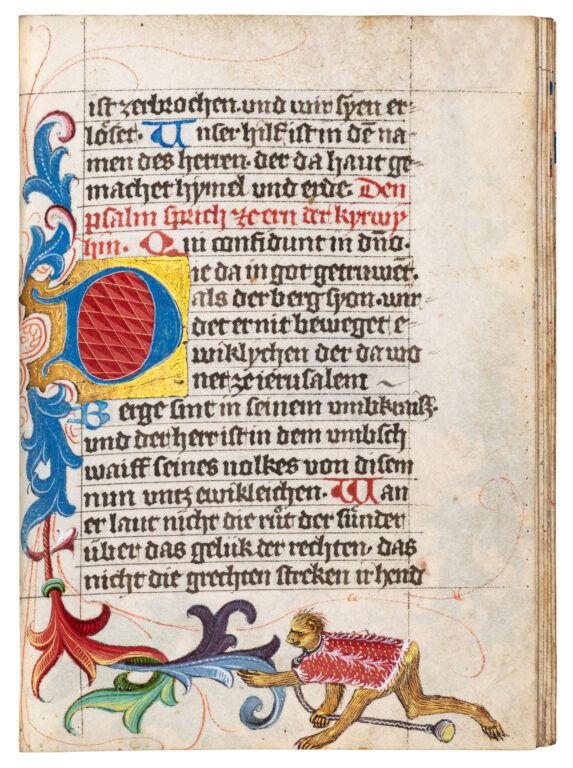 ist zerbrochen. und wir syen er-
löset. Unser hilf ist in dē na-
men des herren. der da haut ge-
machet hymel und erde. Den
psalm sprich ze ern der kyrwy-
hin. Qui confidunt in dn̄o.
Die da in got getruwēt.
als der berg syon. wir-
det er nit beweget e-
wiklychen der da wo-
net ze ierusalem ~
Berge sint in seinem umbkraiss.
und der herr ist in dem umbsch
waiff seines volkes von disem
nun untz ewikleichen. Wan
er laut nicht die růt der sünder
über das gelük der rechten. das
nicht die grechten streken ir hend